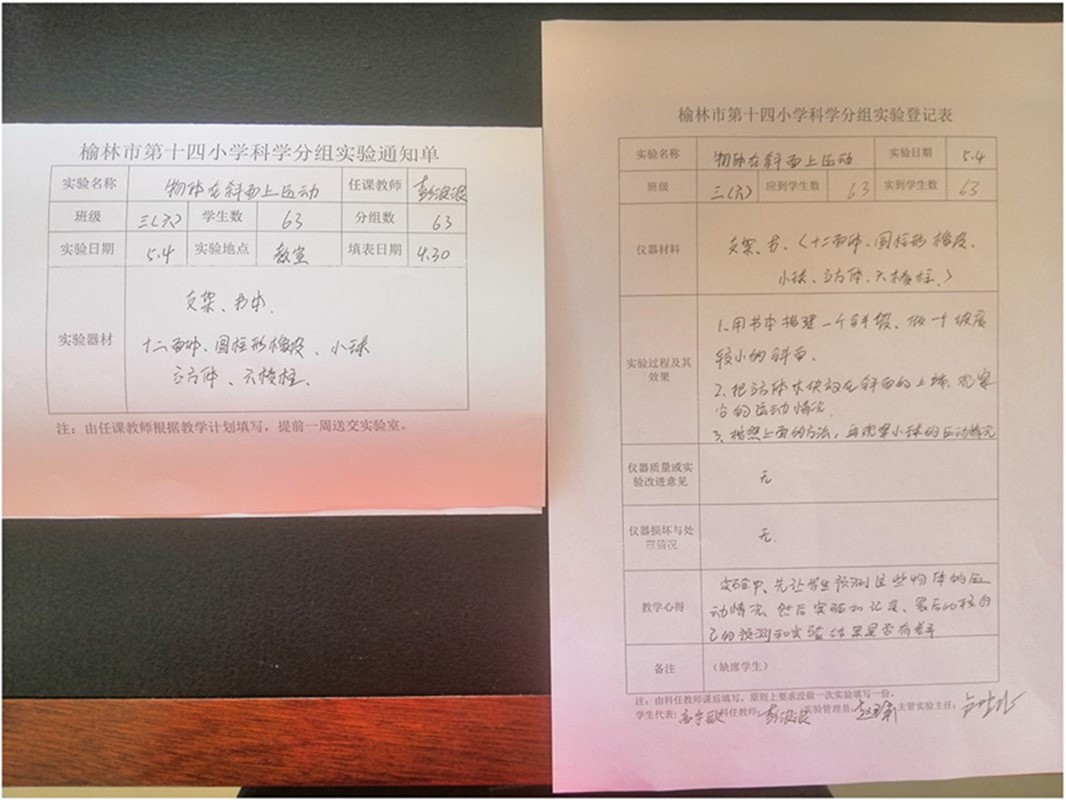 榆林市第十四小学科学分组实验通知单
实验名称 物体在斜面上运动 任课教师
班级 三(六) 学生数 63 分组数 63
实验日期 5.4 实验地点 教室 填表日期 4.30
实验器材
支架、书本、
十二面体、圆柱形橡皮、小球
立方体、六棱柱、
注：由任课教师根据教学计划填写，提前一周送交实验室。
榆林市第十四小学科学分组实验登记表
实验名称 物体在斜面上运动 实验日期 5.4
班级 三(六) 应到学生数 63 实到学生数 63
仪器材料
支架、书、(十二面体、圆柱形橡皮、
小球、立方体、六棱柱、)
实验过程及其效果
1.用书本搭建一个台阶、做一个坡度
较小的斜面、
2.把立方体木块放在斜面的上端,观察
它的运动情况.
3、按照上面的方法,再观察小球的运动情况
仪器质量或实验改进意见 无
仪器损坏与处理情况 无.
教学心得
实验中、先让学生预测这些物体的运
动情况,然后实验和记录、最后比较自
己的预测和实验结果是否有差异
备注 (缺席学生)
注：由科任教师课后填写，原则上要求没做一次实验填写一份。
学生代表: 科任教师: 实验管理员: 主管实验主任: